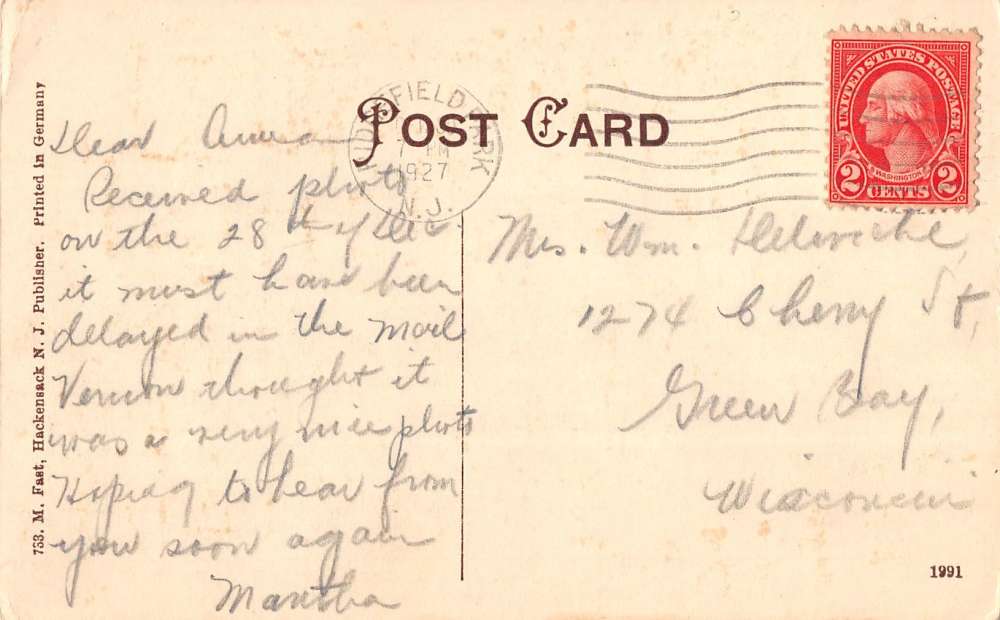 POST CARD
RIDGEFIELD PARK
1927
N. J.
UNITED STATES POSTAGE
WASHINGTON
2 CENTS 2
Dear
Received photo
on the 28th of Dec.
it must have been
delayed in the mail
Vernon thought it
was a very nice photo
Hoping to hear from
you soon again
Martha
Mrs. Wm.
1274 Cherry St,
Green Bay,
Wisconsin
733. M. Fast, Hackensack N. J. Publisher. Printed in Germany
1991